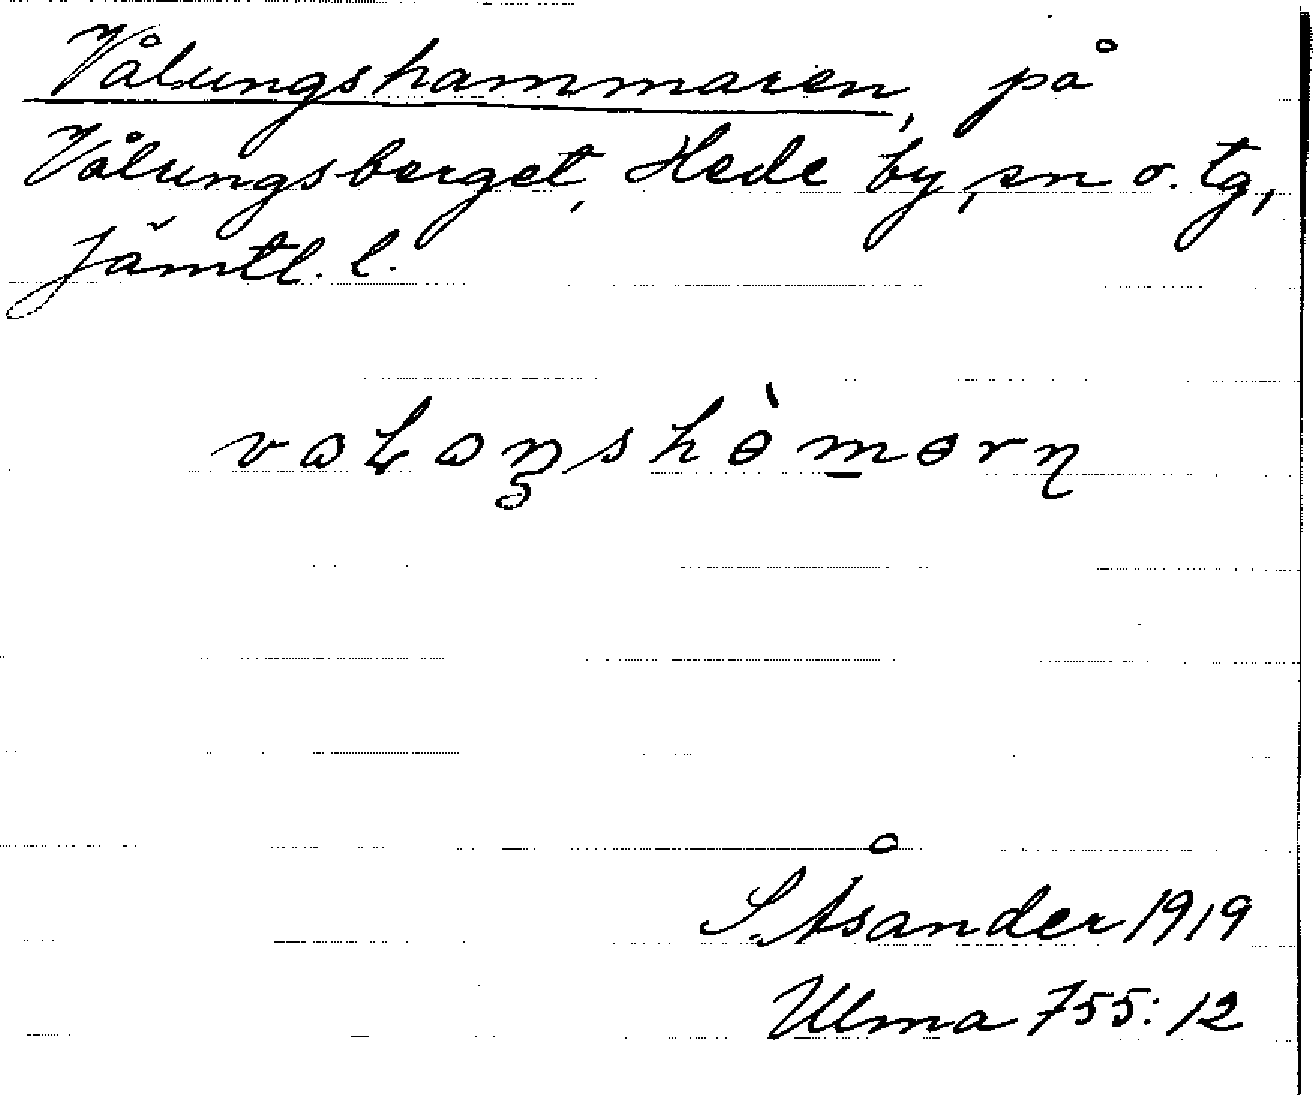 Vålungshammaren, på
Vålungsberget, Hede by, sn o. tg,
Jämtl. l.
vaƚaŋshə̀mərn
S. Åsander 1919
Ulma 755:12